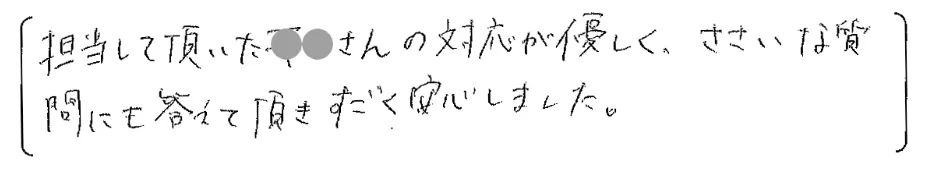 担当して頂いた●●さんの対応が優しく、ささいな質
問にも答えて頂きすごく安心しました。